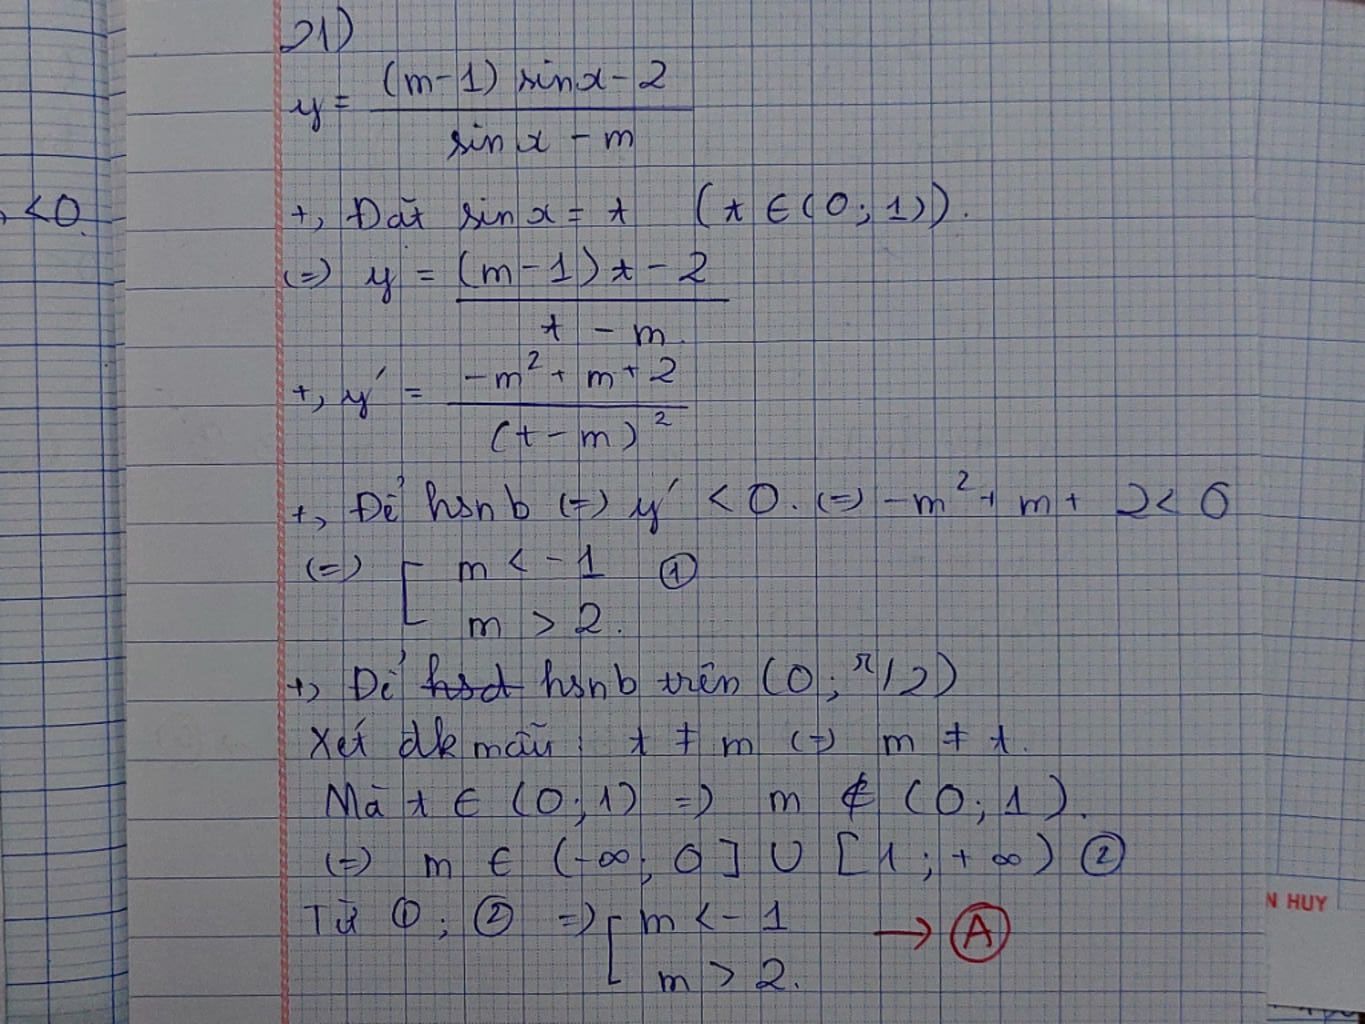 21)
y = (m-1) sinx - 2 / sinx - m
, <0
+, Đặt sinx = t (t ∈ (0; 1)).
(=) y = (m-1)t - 2 / t - m.
+, y' = -m² + m + 2 / (t-m)²
+, Để hsnb (=) y' < 0. (=) -m² + m + 2 < 0
(=) [ m < -1 ①
m > 2.
+, Để hsd hsnb trên (0; π/2)
Xét đk mẫu: t ≠ m (=) m ≠ t.
Mà t ∈ (0;1) =) m ∉ (0; 1).
(=) m ∈ (-∞; 0] ∪ [1; +∞) ②
Từ ①; ② =) [ m < -1 → Ⓐ
m > 2.
N HUY